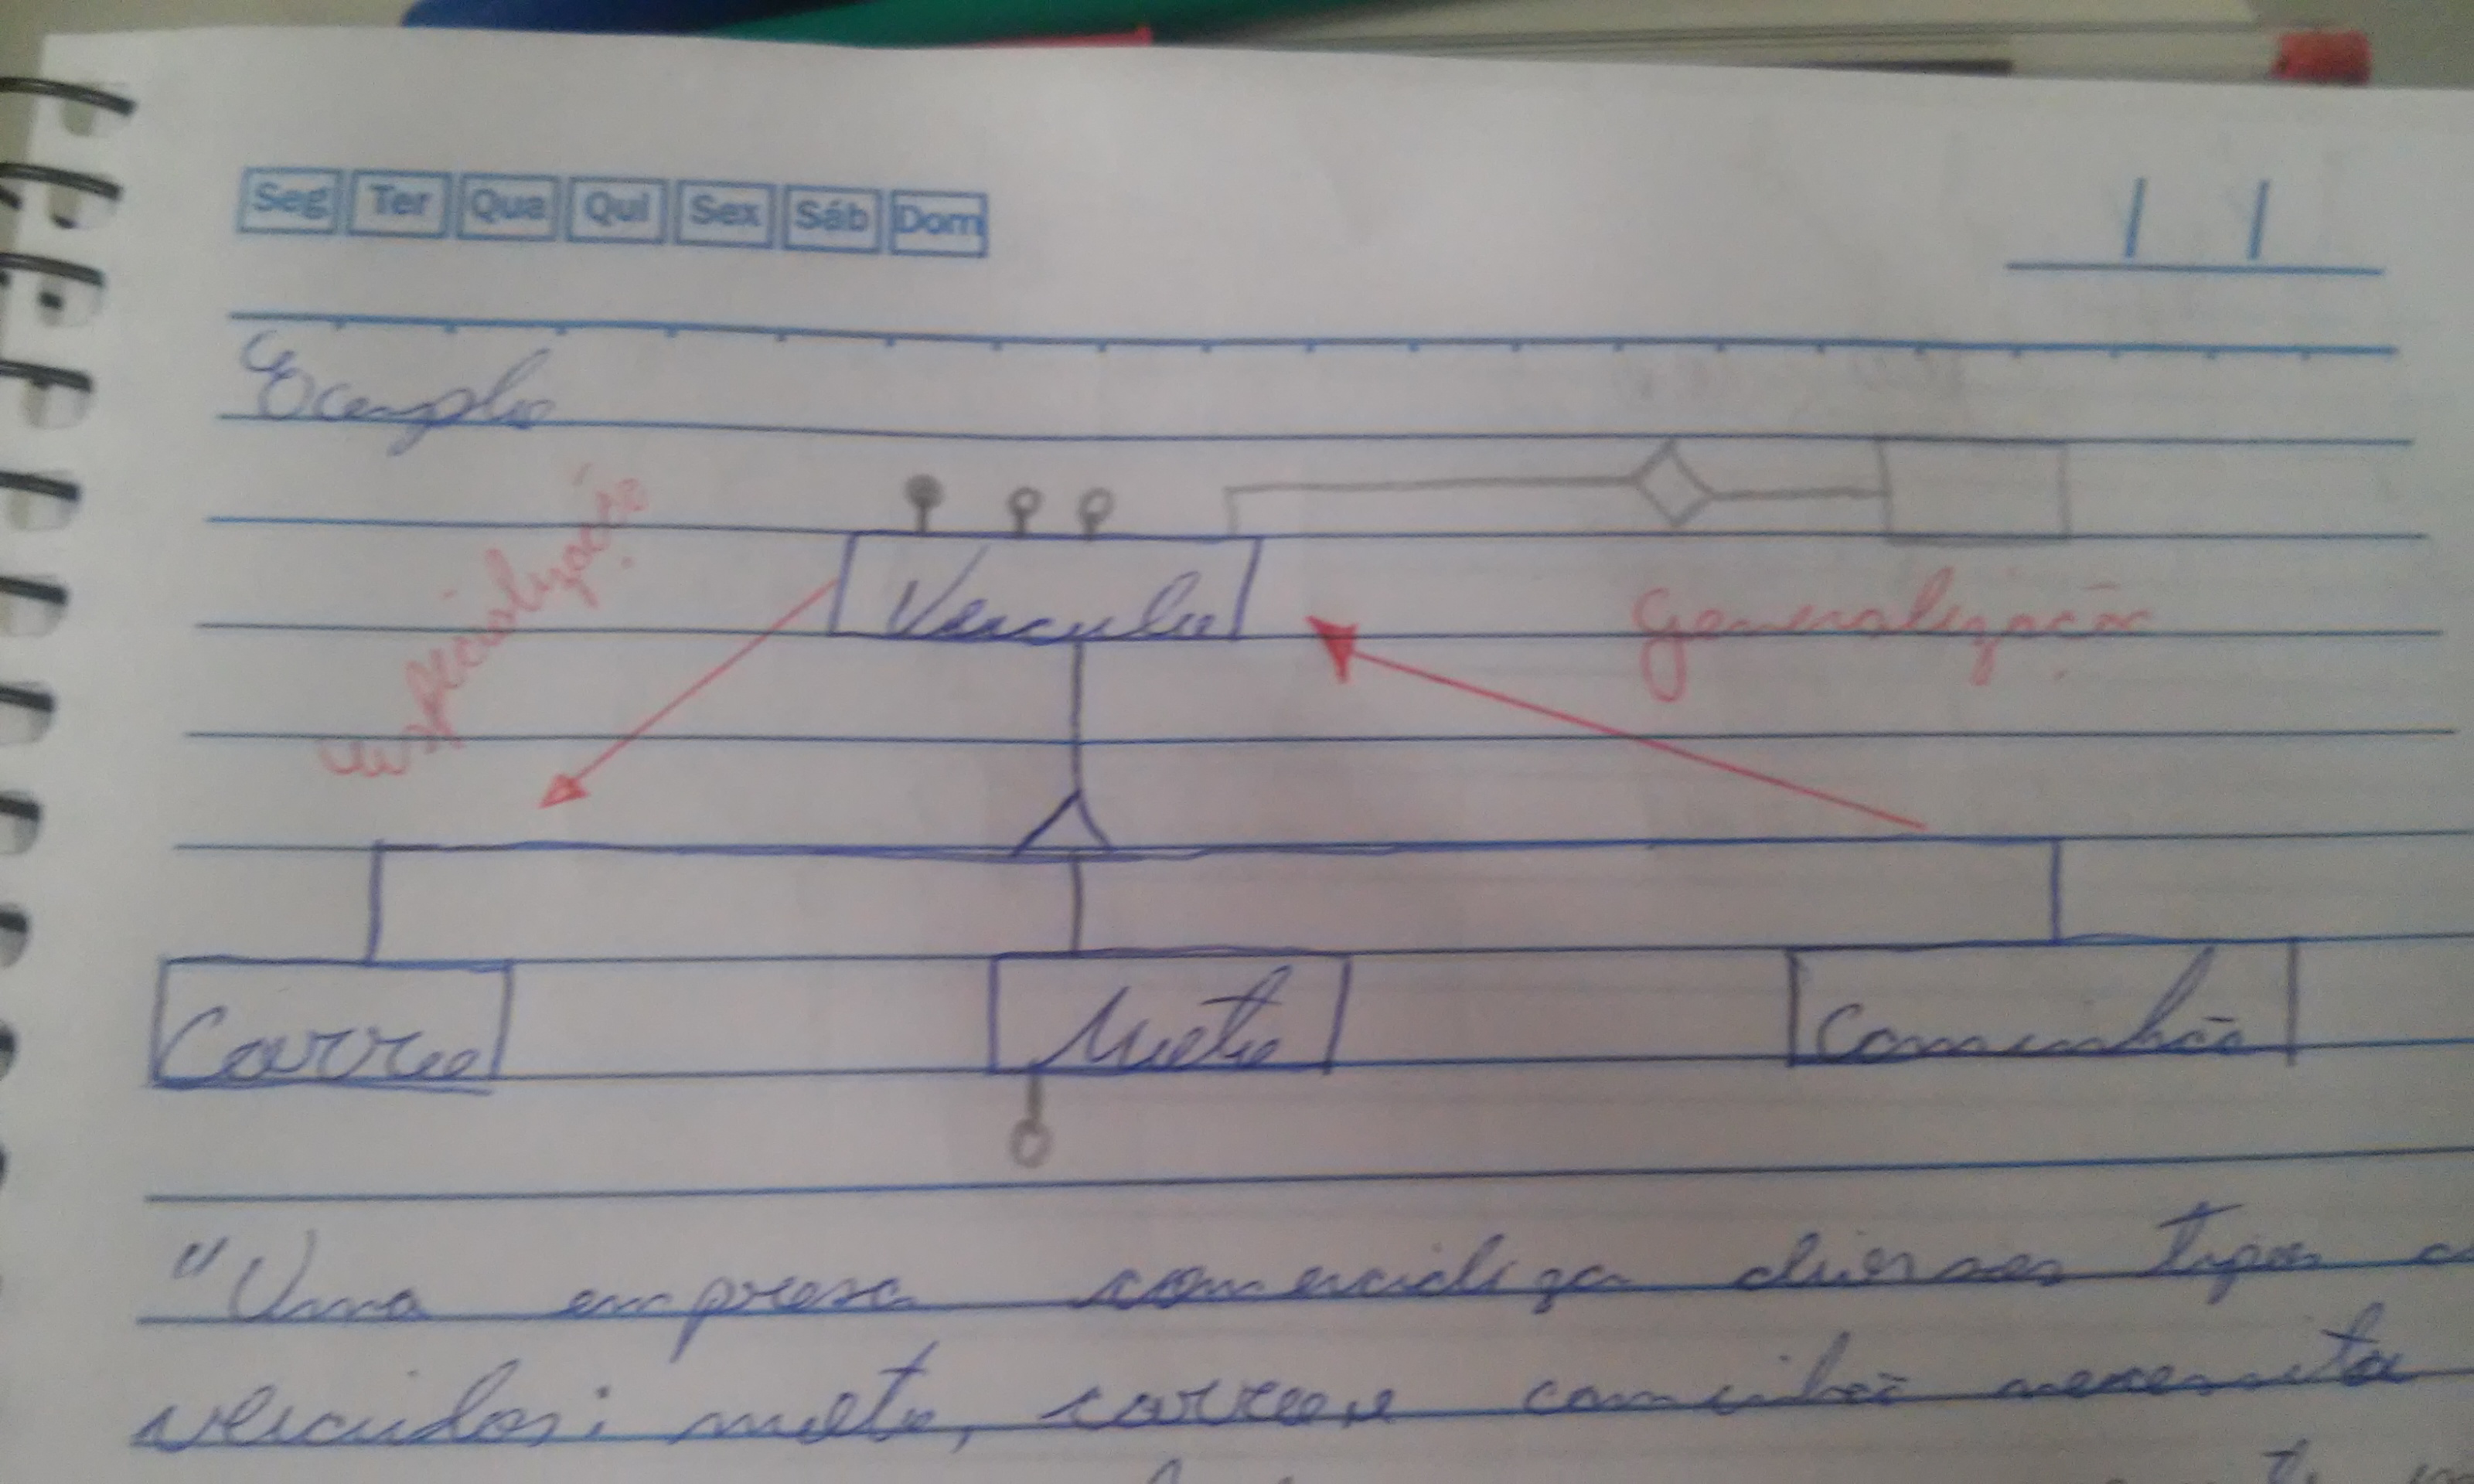 Seg Ter Qua Qui Sex Sáb Dom
Exemplo
especialização
Veiculo
Generalização
Carro
Moto
Caminhão
"Uma empresa comercializa diversos tipos
veiculos: moto, carro e caminhão necessita